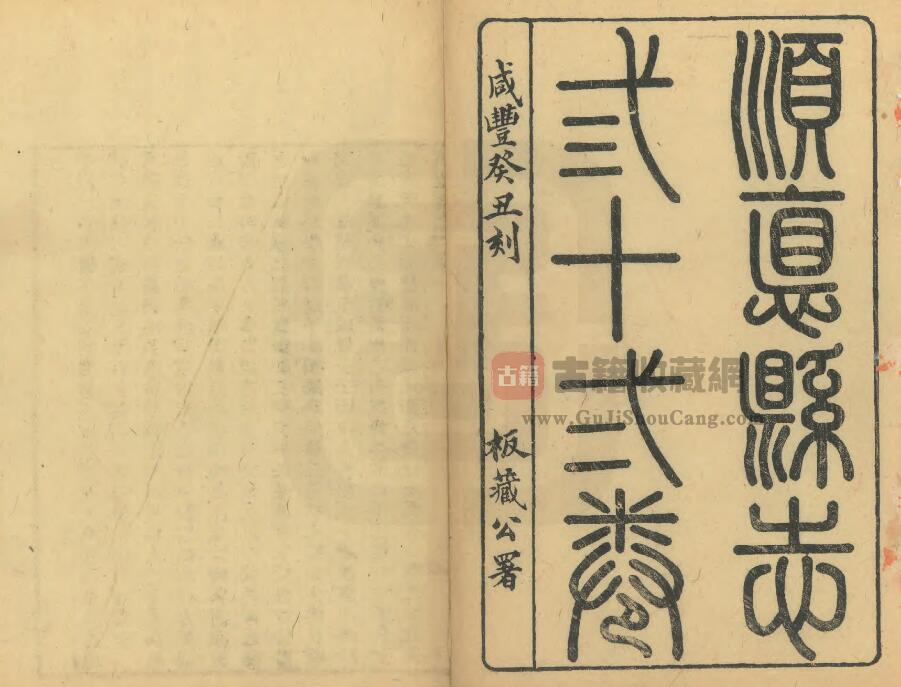 順悳縣志
弎十弍卷
咸豐癸丑刻
板藏公署
古籍
古籍收藏網
www.GuJiShouCang.com